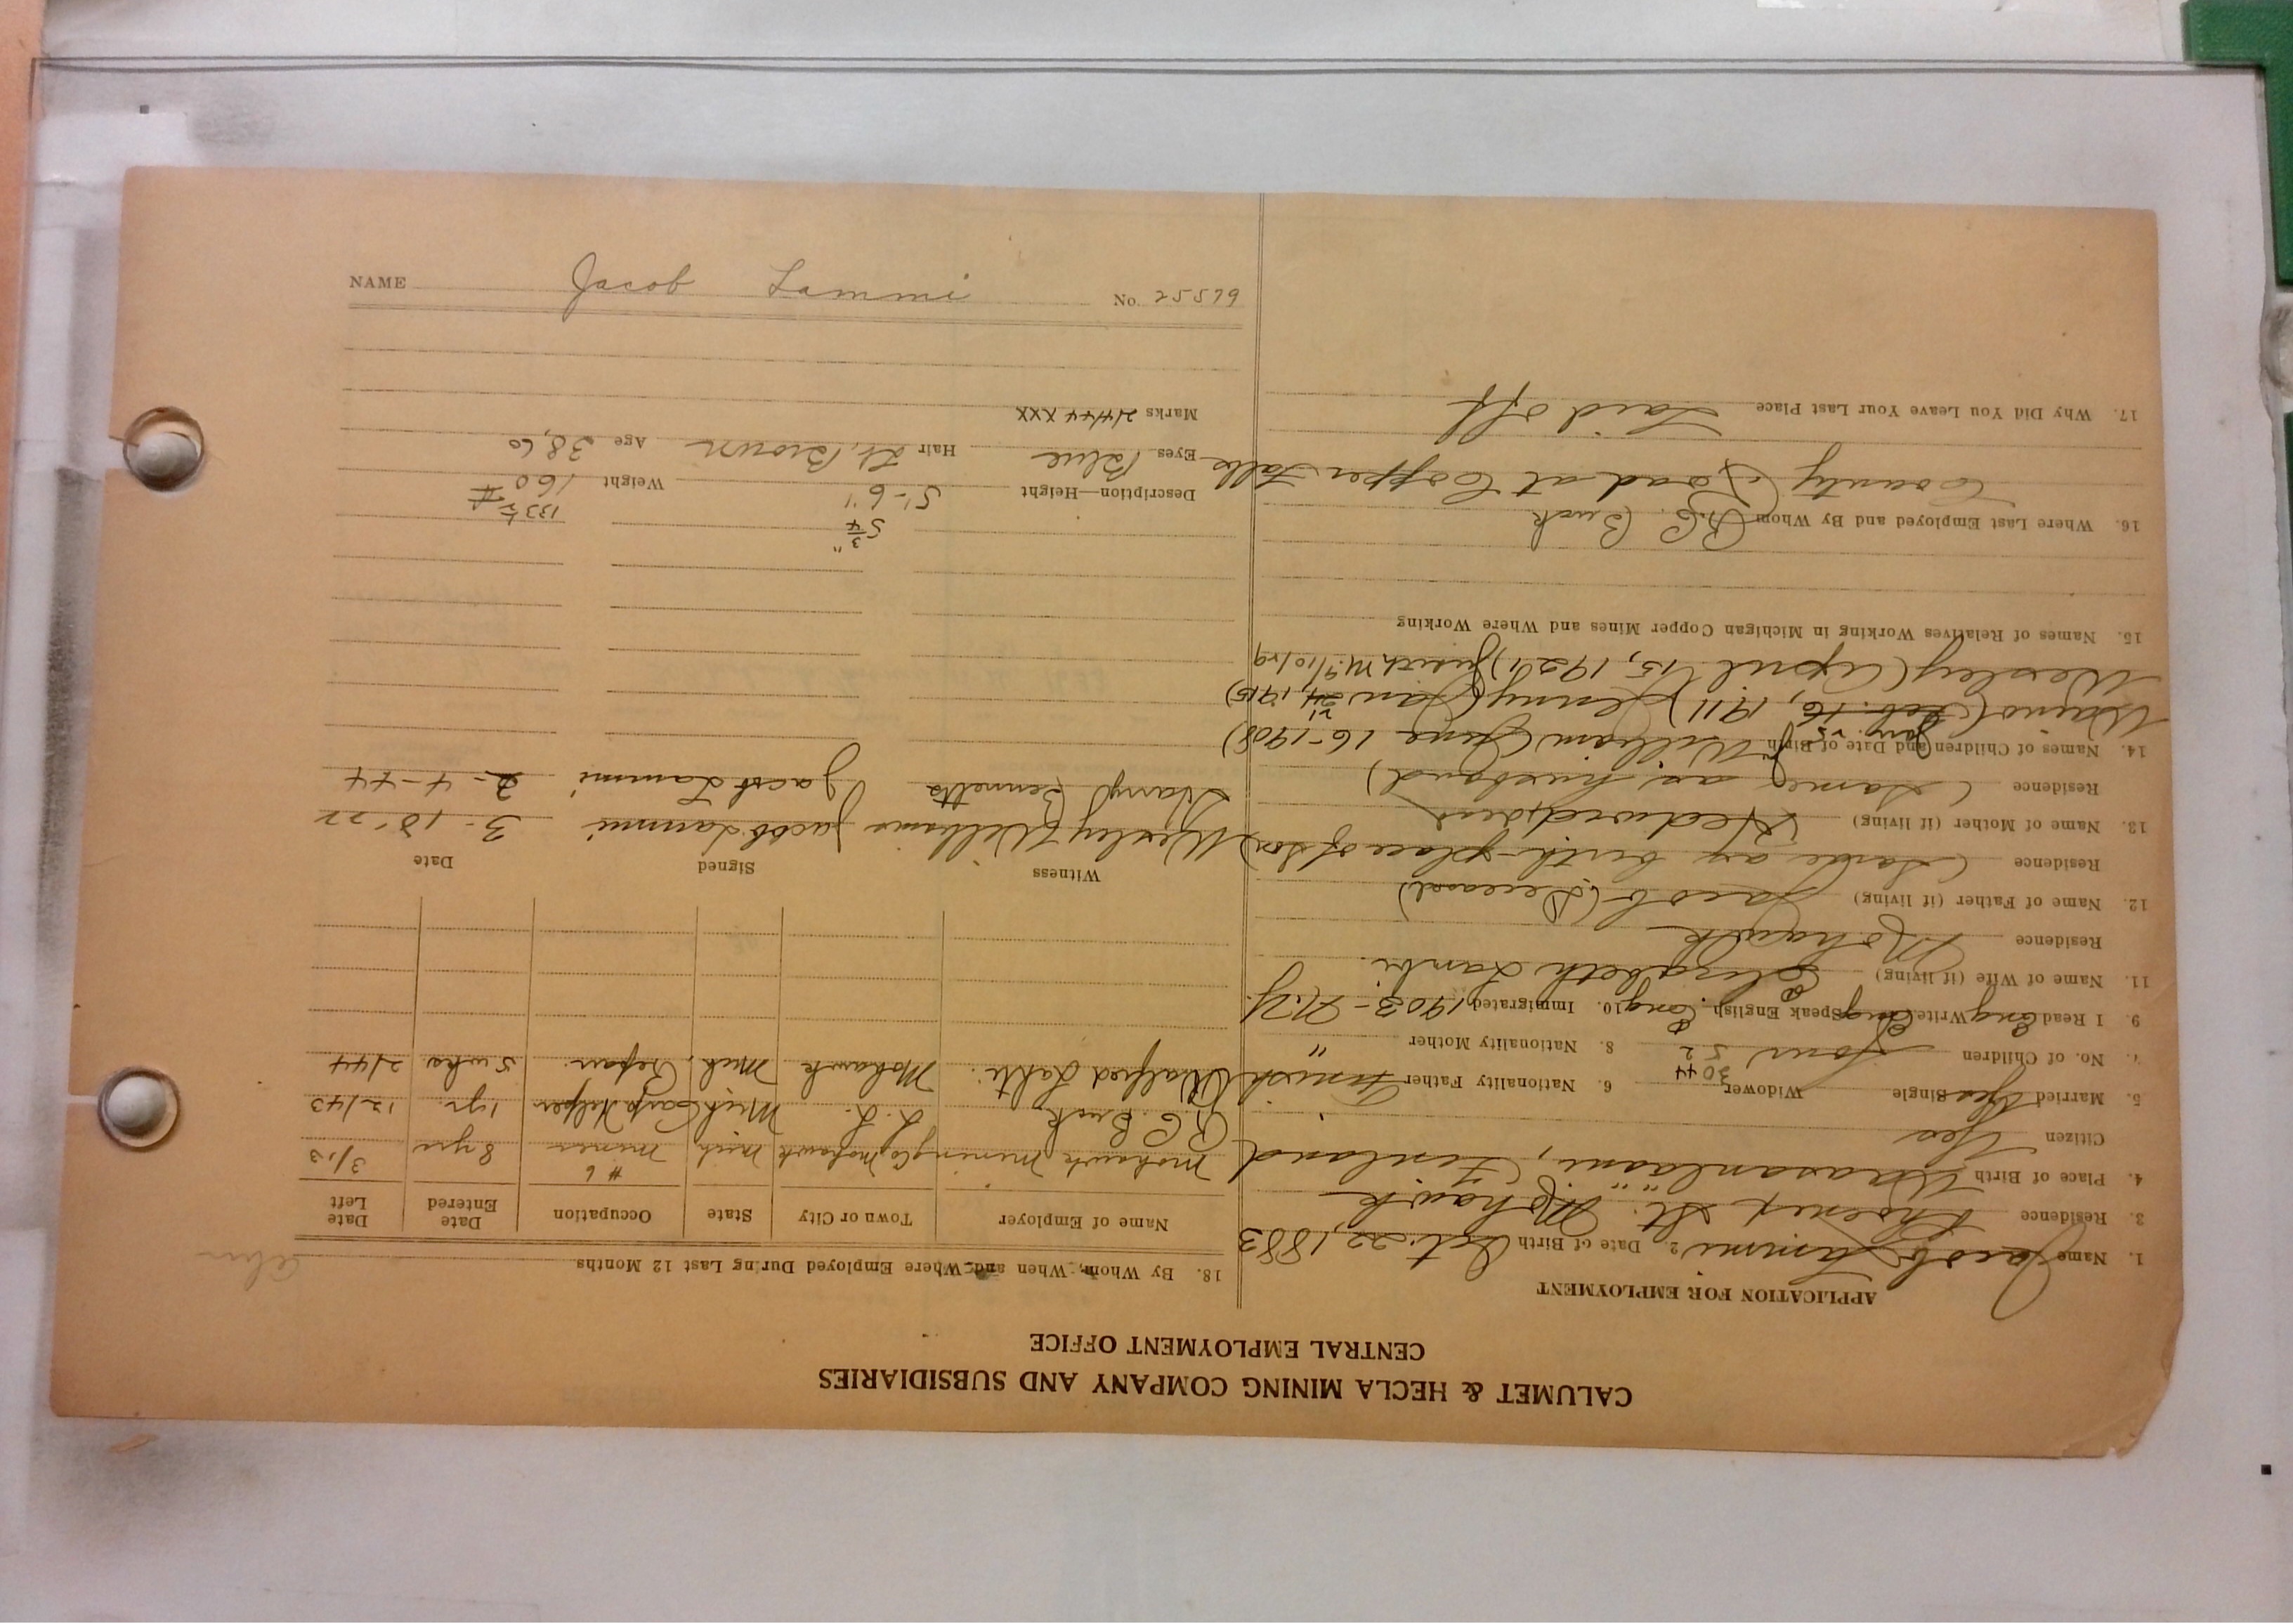 CALUMET & HECLA MINING COMPANY AND SUBSIDIARIES
CENTRAL EMPLOYMENT OFFICE
APPLICATION FOR EMPLOYMENT
1. Name Jacob Lammi 2. Date of Birth Oct. 22, 1883
3. Residence Phoenix St. Mohawk
4. Place of Birth Waasanlaani, Finland
Citizen Yes
5. Married Yes Single Widower 6. Nationality Father Finnish
30 44
7. No. of Children Four 52 8. Nationality Mother "
9. I Read Eng Write Eng Speak English Eng. 10. Immigrated 1903 - N.Y.
11. Name of Wife (if living) Elizabeth Lambi.
Residence Mohawk
12. Name of Father (if living) Jacob (Deceased)
Residence (Same as birth-place of son)
13. Name of Mother (if living) Hedwig
Residence (Same as husband)
14. Names of Children and Date of Birth William (June 16-1908)
Waino (Feb. 16, 1911) Jenny (Jan 24, 1915)
Wesley (April 15, 1921) Judith M. 9/10/29
15. Names of Relatives Working in Michigan Copper Mines and Where Working
16. Where Last Employed and By Whom R.C. Buck
County Road at Copper Falls
17. Why Did You Leave Your Last Place Laid off
18. By Whom, When and Where Employed During Last 12 Months
Name of Employer Town or City State Occupation Date Entered Date Left
Mohawk Mining Co Mohawk Mich #6 miner 8 yrs 3/13
R C Buck L. L. Mich Carp Helper 1 yr. 12/43
Walfred Lahti. Mohawk Mich. Repair. 5 wks 2/44
Witness Signed Date
Wesley Williams Jacob Lammi 3-18-22
Harry Bennetts Jacob Lammi 2-4-44
5 4 3/4" 133 1/2 #
Description—Height 5'-6" Weight 160
Eyes Blue Hair Lt. Brown Age 38, 60
Marks 2/4/44 XXX
NAME Jacob Lammi No. 25579